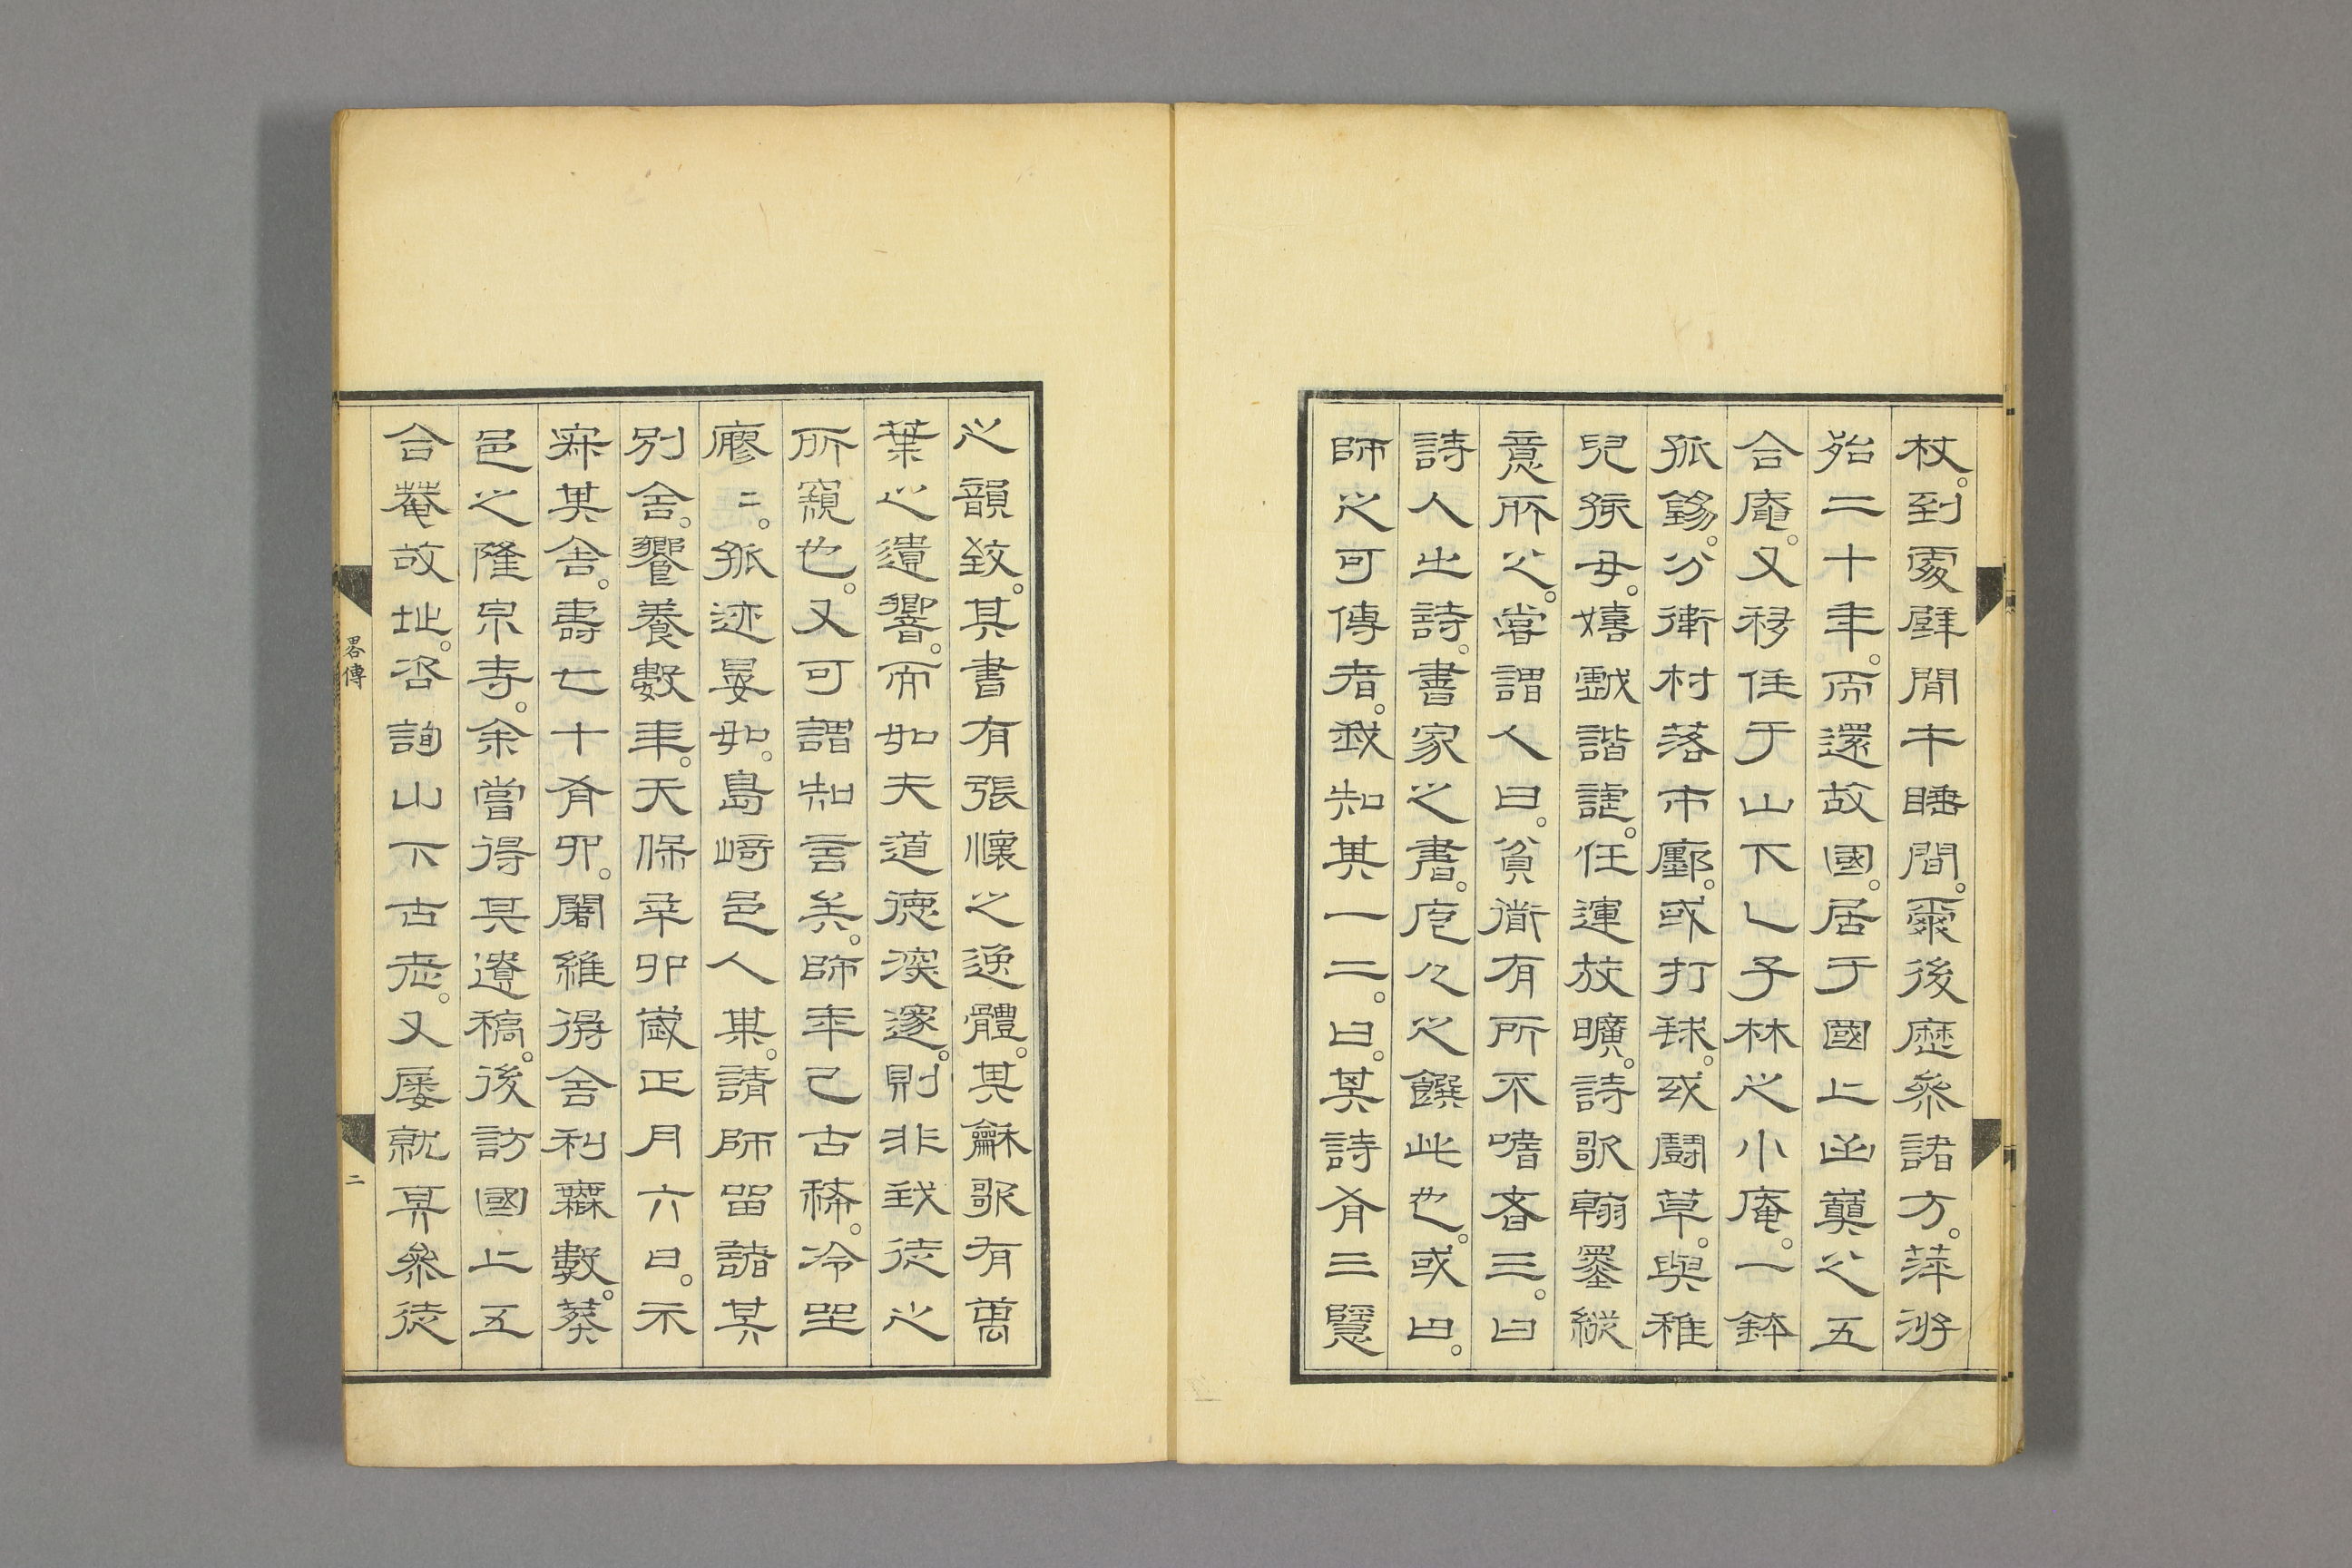 杖。到處壁閒午睡間。爾後歷參諸方。萍游
殆二十年。而還故國。居于國上凾嶺之五
合庵。又移住于山下乙子林之小庵。一鉢
孤錫。分衛村落市廛。或打毬。或鬪草。與稚
兒孩母。嬉戲諧謔。任運放曠。詩歌翰墨縱
意所之。嘗謂人曰。貧道有所不嗜者三。曰
詩人之詩。書家之書。庖人之饌此也。或曰。
師之可傳者。我知其一二。曰。其詩有三覽
之韻致。其書有張懷之逸體。其龢歌有萬
葉之遺響。而如夫道德深邃。則非我徒之
所窺也。又可謂知言矣。師年已古稀。冷坐
廖〻。孤迹晏如。島﨑邑人某。請師畱諸其
別舍。饗養數年。天保辛卯歲正月六日。示
寂其舍。壽七十有四。闍維得舍利無數。葬
邑之隆泉寺。余嘗得其遺稿。後訪國上五
合菴故址。咨詢山下古老。又屢就其參徒
畧傳
二